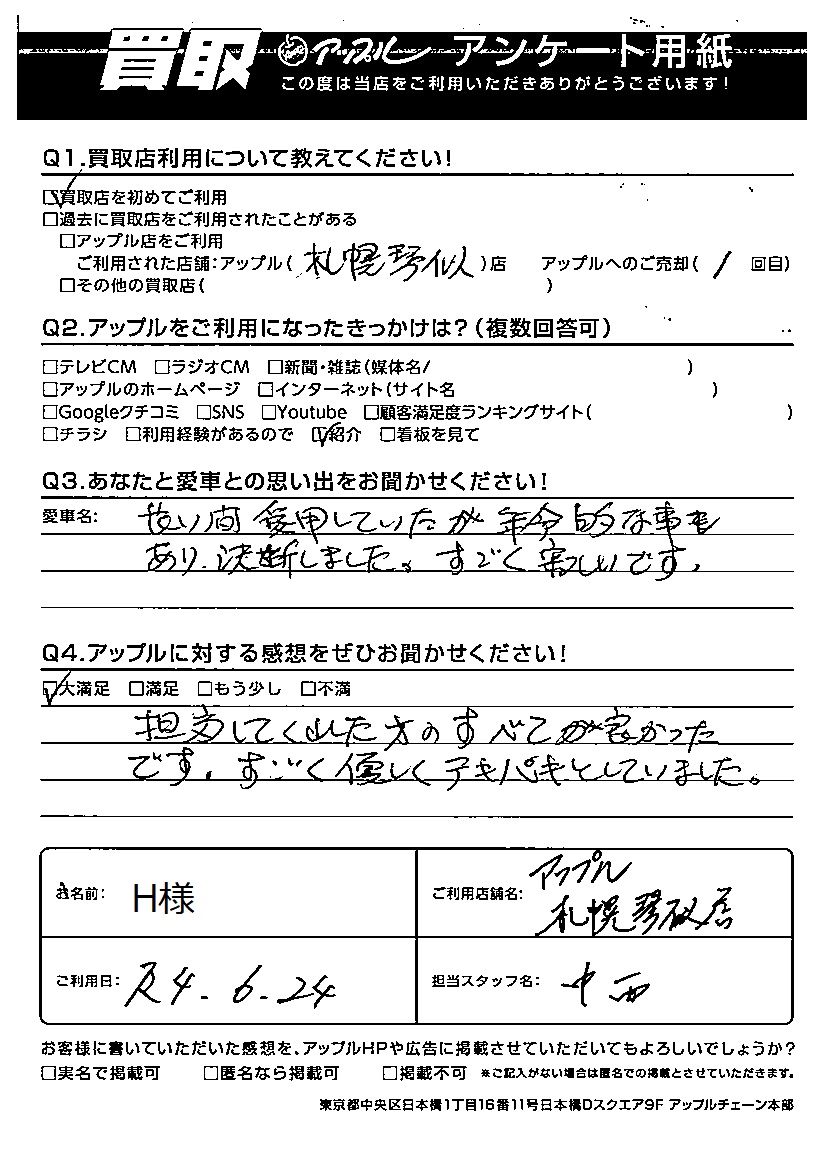 買取 アップル アンケート用紙
この度は当店をご利用いただきありがとうございます!
Q1.買取店利用について教えてください!
☑買取店を初めてご利用
□過去に買取店をご利用されたことがある
□アップル店をご利用
ご利用された店舗:アップル(札幌琴似)店 アップルへのご売却(1回目)
□その他の買取店( )
Q2.アップルをご利用になったきっかけは?(複数回答可)
□テレビCM □ラジオCM □新聞・雑誌(媒体名/ )
□アップルのホームページ □インターネット(サイト名 )
□Googleクチコミ □SNS □Youtube □顧客満足度ランキングサイト( )
□チラシ □利用経験があるので ☑紹介 □看板を見て
Q3.あなたと愛車との思い出をお聞かせください!
愛車名: 長い間愛用していたが年令的な事も
あり、決断しました。すごく寂しいです。
Q4.アップルに対する感想をぜひお聞かせください!
☑大満足 □満足 □もう少し □不満
担当してくれた方のすべてが良かった
です。すごく優しくテキパキとしていました。
お名前: H様 ご利用店舗名: アップル
札幌琴似店
ご利用日: R4.6.24 担当スタッフ名: 中西
お客様に書いていただいた感想を、アップルHPや広告に掲載させていただいてもよろしいでしょうか?
□実名で掲載可 □匿名なら掲載可 □掲載不可 ※ご記入がない場合は匿名での掲載とさせていただきます。
東京都中央区日本橋1丁目16番11号日本橋Dスクエア9F アップルチェーン本部